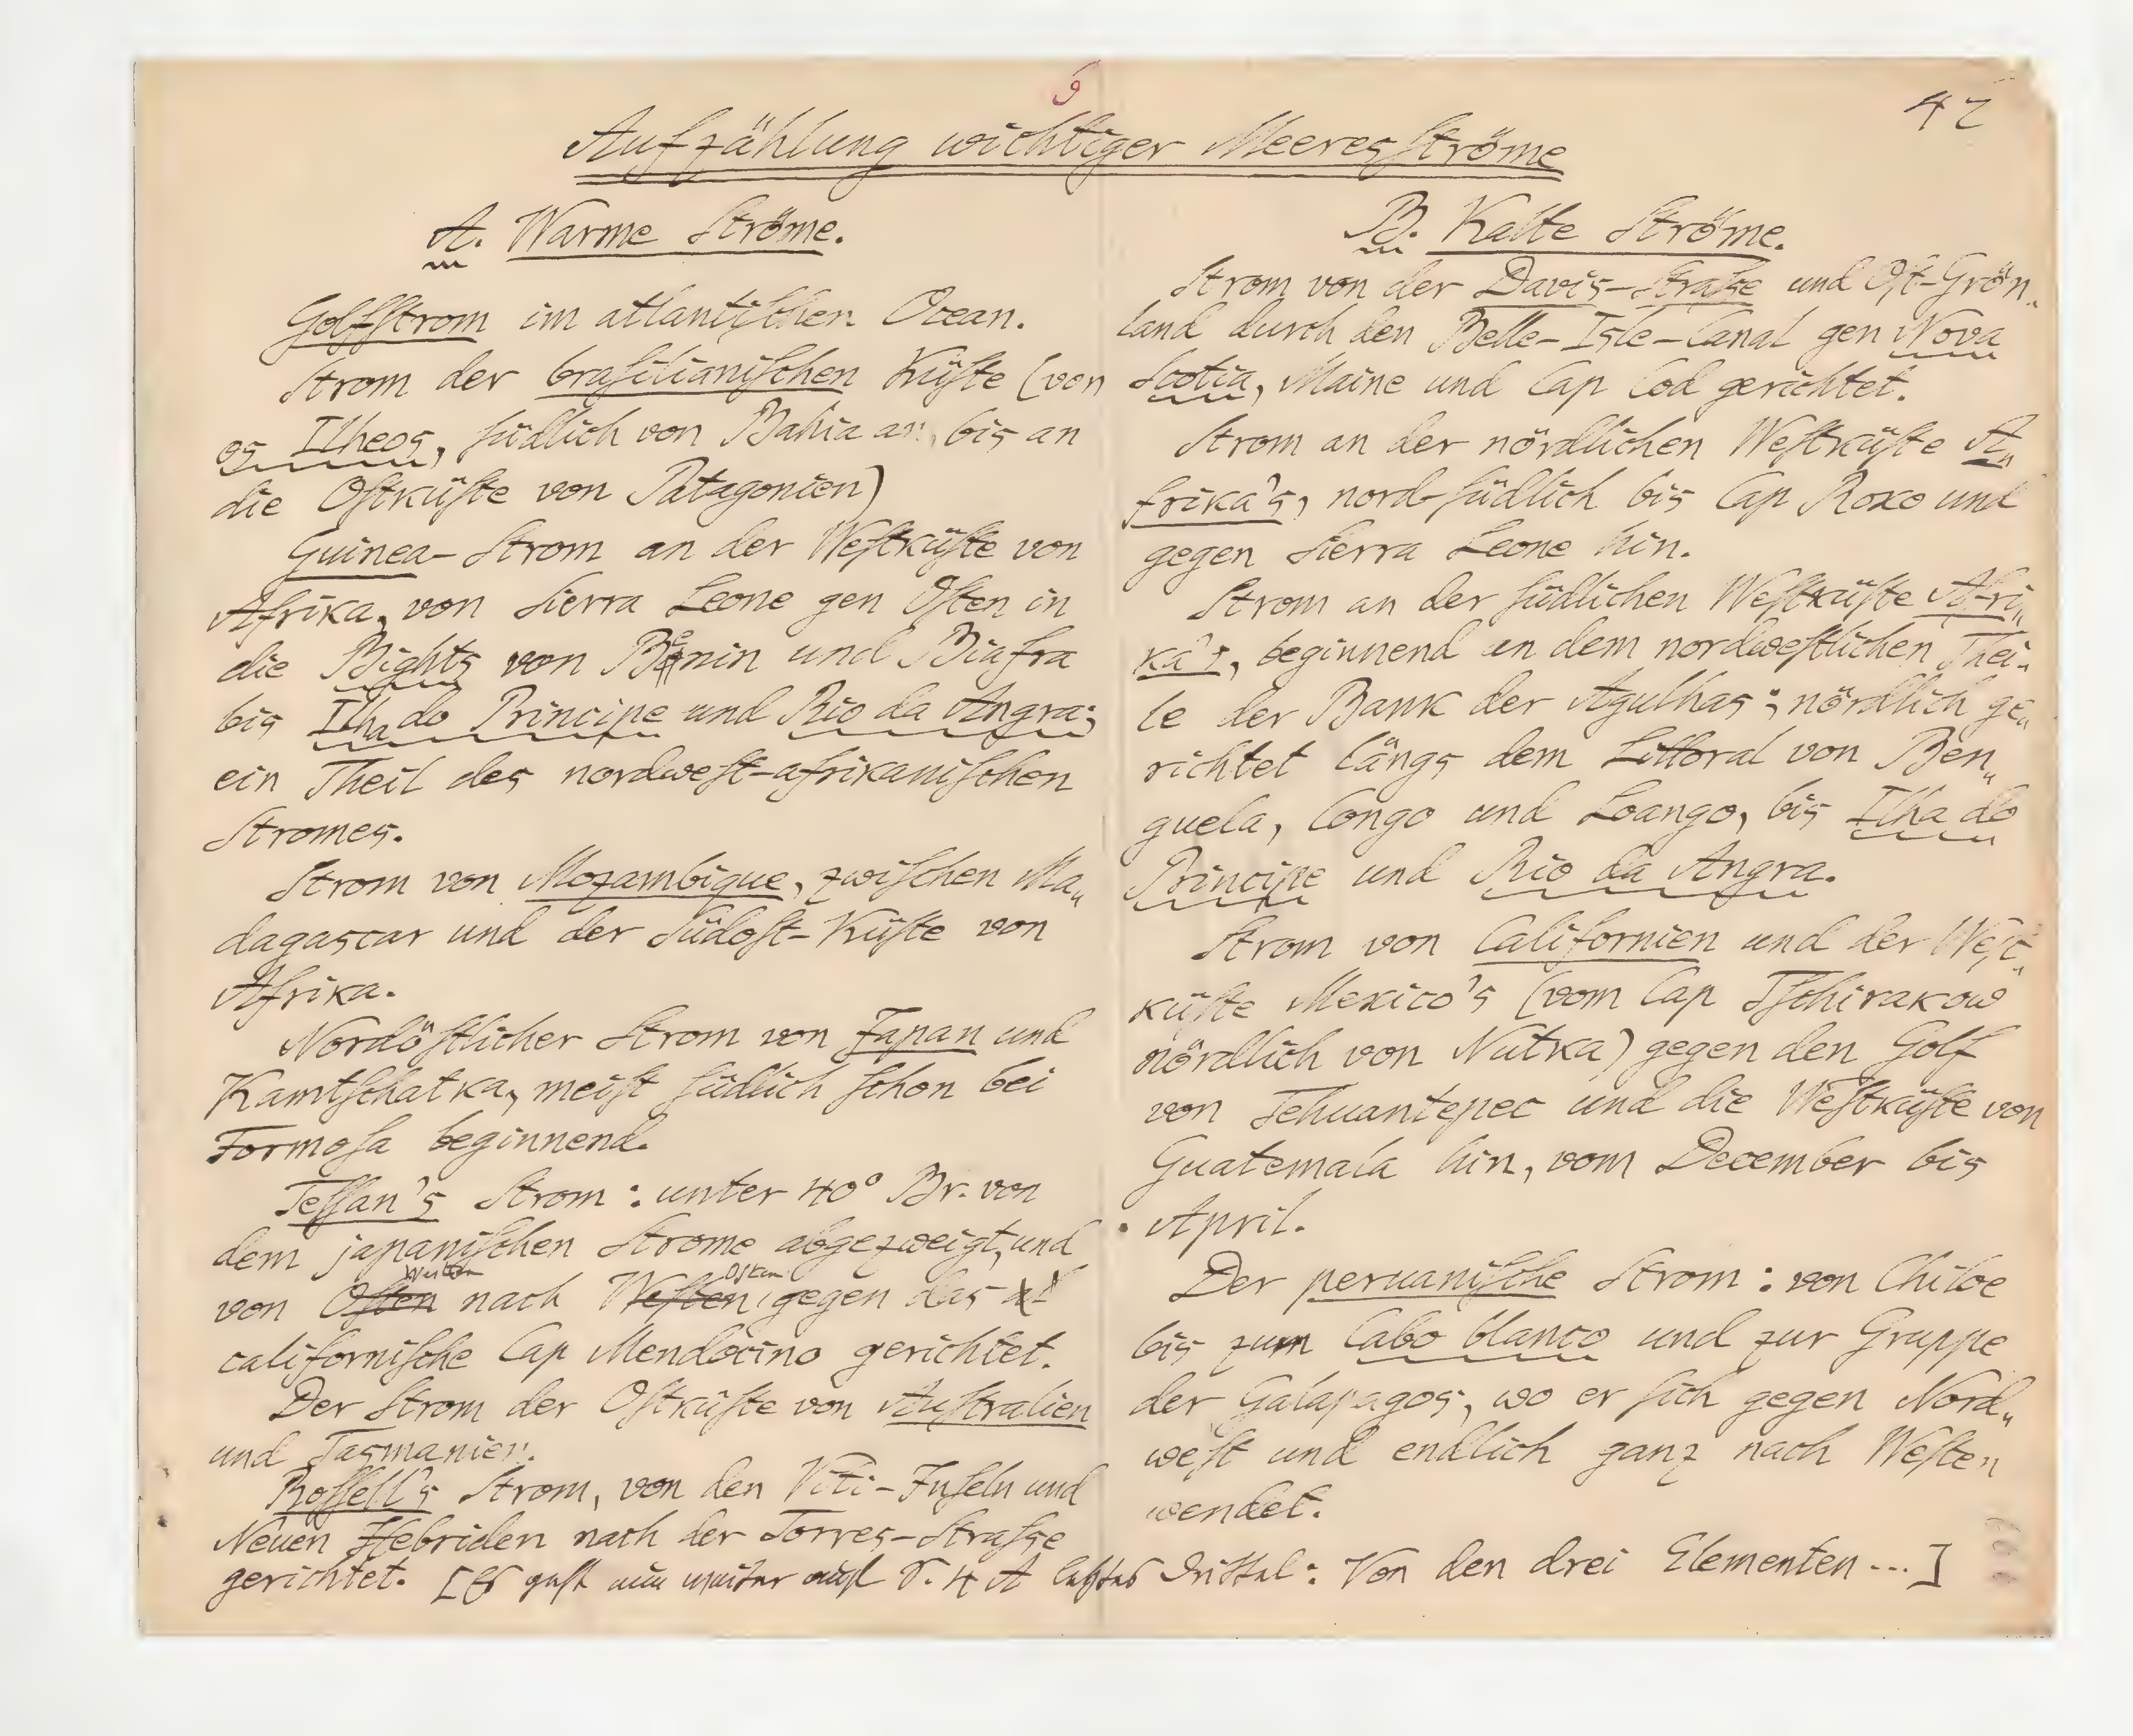 5
42
Aufzählung wichtiger Meeresströme
A. Warme Ströme.
Golfstrom im atlantischen Ocean.
Strom der brasilianischen Küste (von
os Ilheos, südlich von Bahia an, bis an
die Ostküste von Patagonien)
Guinea-Strom an der Westküste von
Afrika, von Sierra Leone gen Osten in
die Bights von Benin und Biafra
bis Ilha do Principe und Rio da Angra;
ein Theil des nordwest-afrikanischen
Stromes.
Strom von Mozambique, zwischen Ma„
dagascar und der Südost-Küste von
Afrika.
Nordöstlicher Strom von Japan und
Kamtschatka, meist südlich schon bei
Formosa beginnend.
Tessan's Strom: unter 40° Br. von
dem japanischen Strome abgezweigt, und
Westen Osten
von Osten nach Westen gegen das
californische Cap Mendocino gerichtet.
Der Strom der Ostküste von Australien
und Tasmanien.
Rossell's Strom, von den Viti-Inseln und
Neuen Hebriden nach der Torres-Strasse
gerichtet. [Es geht nun weiter auf S. 4 A letztes Drittal: Von den drei Elementen...]
B. Kalte Ströme.
Strom von der Davis-Straße und Ost-Grön„
land durch den Belle-Isle-Canal gen Nova
Scotia, Maine und Cap Cod gerichtet.
Strom an der nördlichen Westküste A„
frika's, nord-südlich bis Cap Roxo und
gegen Sierra Leone hin.
Strom an der südlichen Westküste Afri„
ka's, beginnend an dem nordwestlichen Thei„
le der Bank der Agulhas; nördlich ge„
richtet längs dem Littoral von Ben„
guela, Congo und Loango, bis Ilha do
Principe und Rio da Angra.
Strom von Californien und der West„
küste Mexico's (vom Cap Tschirakow
nördlich von Nutka) gegen den Golf
von Tehuantepec und die Westküste von
Guatemala hin, vom December bis
April.
Der peruanische Strom: von Chiloe
bis zum Cabo blanco und zur Gruppe
der Galapagos, wo er sich gegen Nord„
west und endlich ganz nach Westen
wendet.